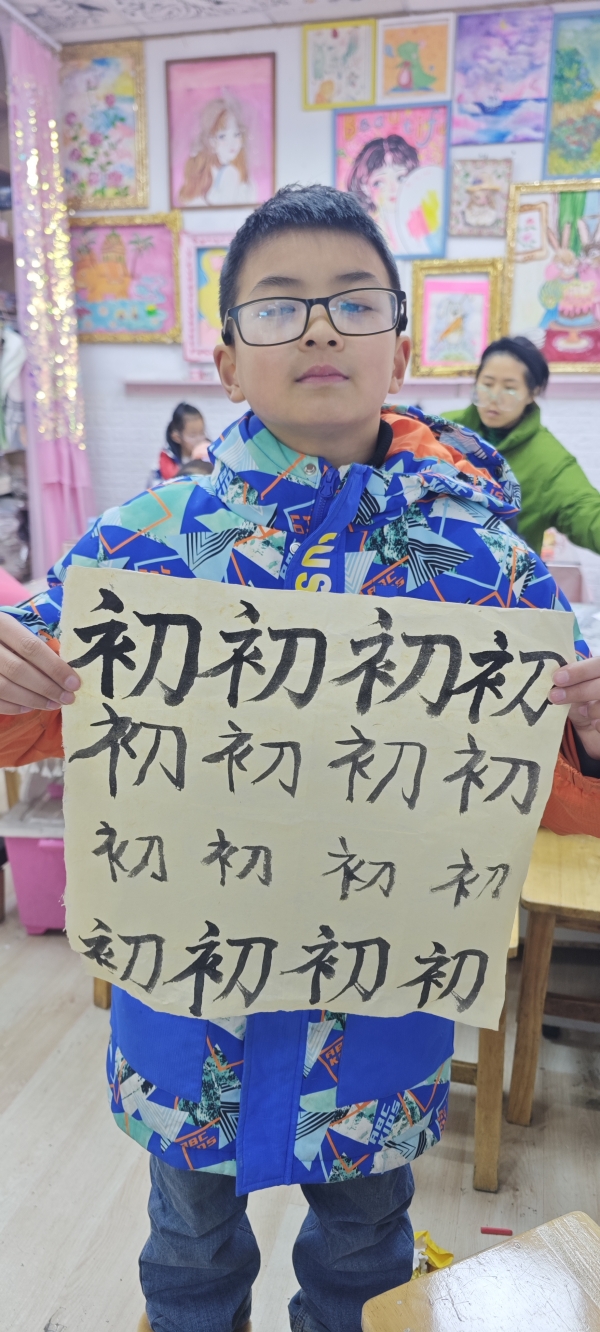 初初初初
初初初初
初初初初
初初初初